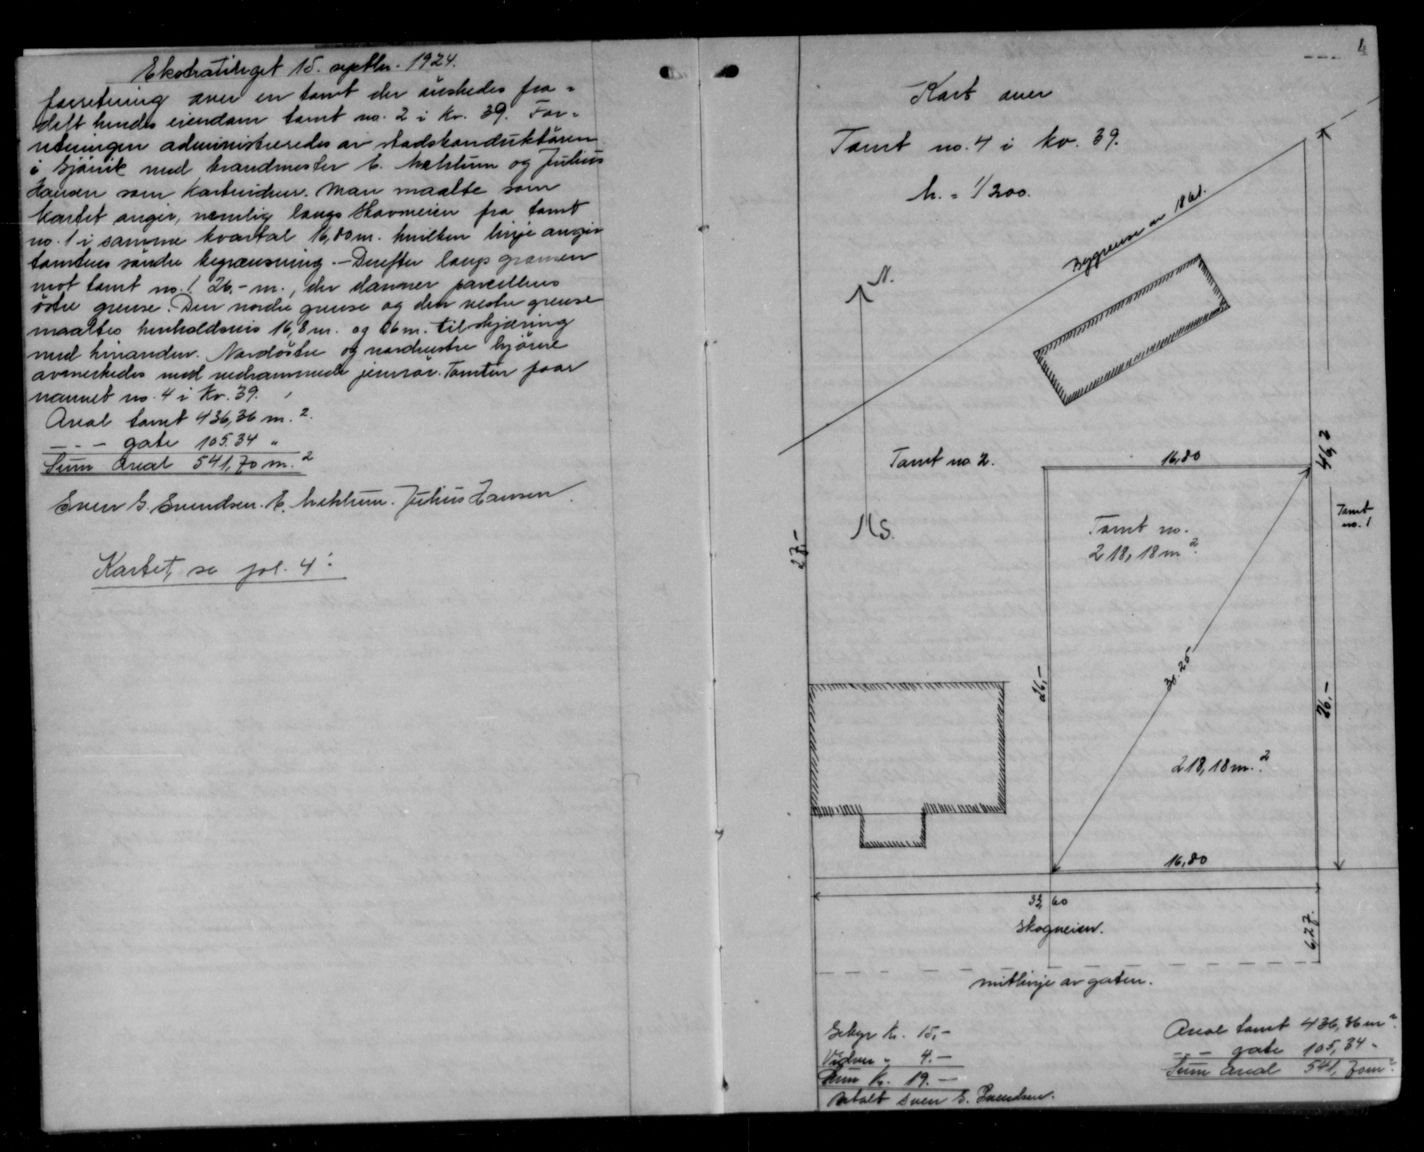 Ekstratinget 15. septbr. 1924.
forretning over en tomt der önskedes fra-
delt hendes eiendom tomt no. 2 i kv. 39. For-
retningen administreredes av stadskonduktören
i Gjövik med brandmester E. Mehlum og Julius
Hansen som kartvidner. Man maalte som
kartet angir, nemlig langs Skovveien fra tomt
no. 1 i samme kvartal 16,80 m. hvilken linje angir
tomtens söndre begrænsning. – Derefter langs grænsen
mot tomt no. 1 26,- m., der danner parcellens
östre grense. Den nordre grense og den vestre grense
maaltes henholdsvis 16,8 m. og 26 m. til skjæring
med hinanden. Nordöstre og nordvestre hjörne
avmerkedes med nedrammede jernrör. Tomten faar
navnet no. 4 i kv. 39.
Areal tomt 436,36 m.²
— - — gate 105.34 "
Sum Areal 541,70 m.²
Even G. Evendsen. E. Mehlum. Julius Hansen.
Kartet, se fol. 4.
4
Kart over
Tomt no. 4 i kv. 39.
M. = 1/200.
Byggrense av
N.
S.
Tomt no 2.
16,80
46,2
Tomt
no. 1
Tomt no.
218,18 m².
27,-
26,-
30.25
26,-
218,18 m.²
16,80
33,60
Skogveien.
6,27.
mitlinje av gaten.
Gebyr kr. 15,-
Vidner " 4.-
Sum kr. 19.-
Betalt Even G. Evendsen.
Areal tomt 436,36 m².
— - — gate 105,34 "
Sum Areal 541,70 m².